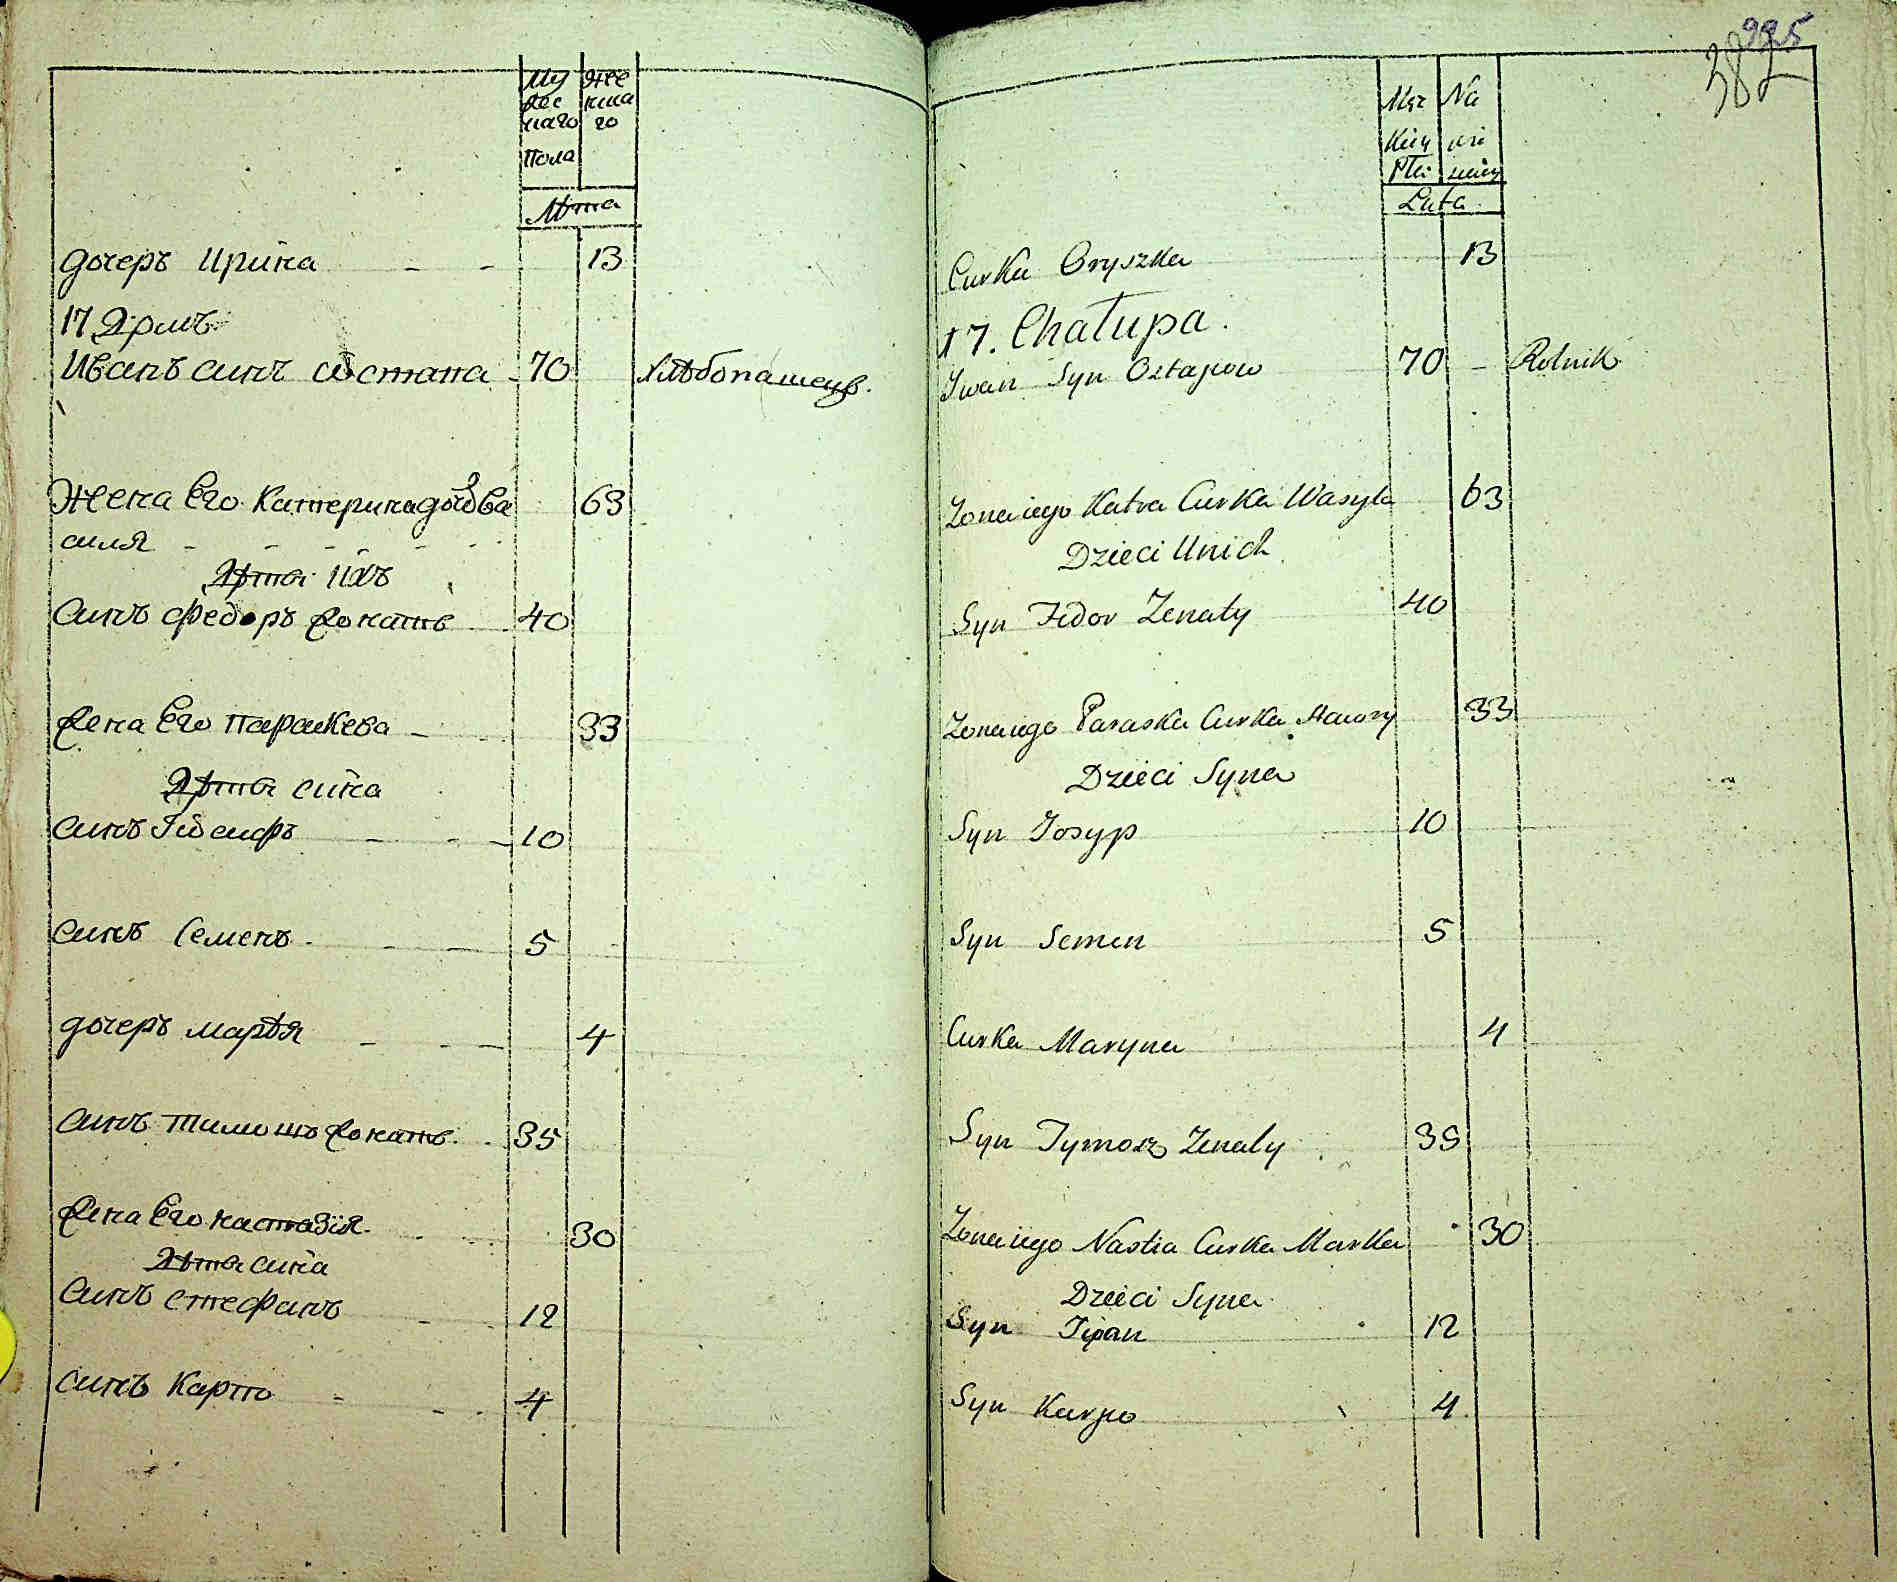 Му Же
жес нска
наго го
Пола
Лѣта
дочерь Ирина - - 13
17 Дымъ
Иванъ синъ Остапа - 70 Хлѣбопашецъ.
Жена Его Катерина дочь Ва 63
силя - - - - -
Дѣти ихъ
Синъ Федоръ женатъ 40
жена Его Параскева - 33
Дѣти сина
Синъ Іосифъ - - - 10
Синъ Семенъ - - - 5
дочеръ Марья - - - 4
Синъ Тимошъ женатъ. 35
жена Его Настазія - 30
Дѣти сина
Синъ Стефанъ - - 12
Синъ Карпо - - - 4
995
382
Męz Na
Kiey wie
Płci
Lata
Curka Oryszka 13
17. Chałupa.
Iwan Syn Ostapow 70 - Rolnik
Zona iego Katra Curka Wasyla 63
Dzieci Unich
Syn Fedor Zenaty 40
Zona iego Paraska Curka 33
Dzieci Syna
Syn Josyp 10
Syn Semen 5
Curka Maryna 4
Syn Tymosz Zenaty 35
Zona iego Nastia Curka Marka 30
Dzieci Syna
Syn 12
Syn Karpo 4